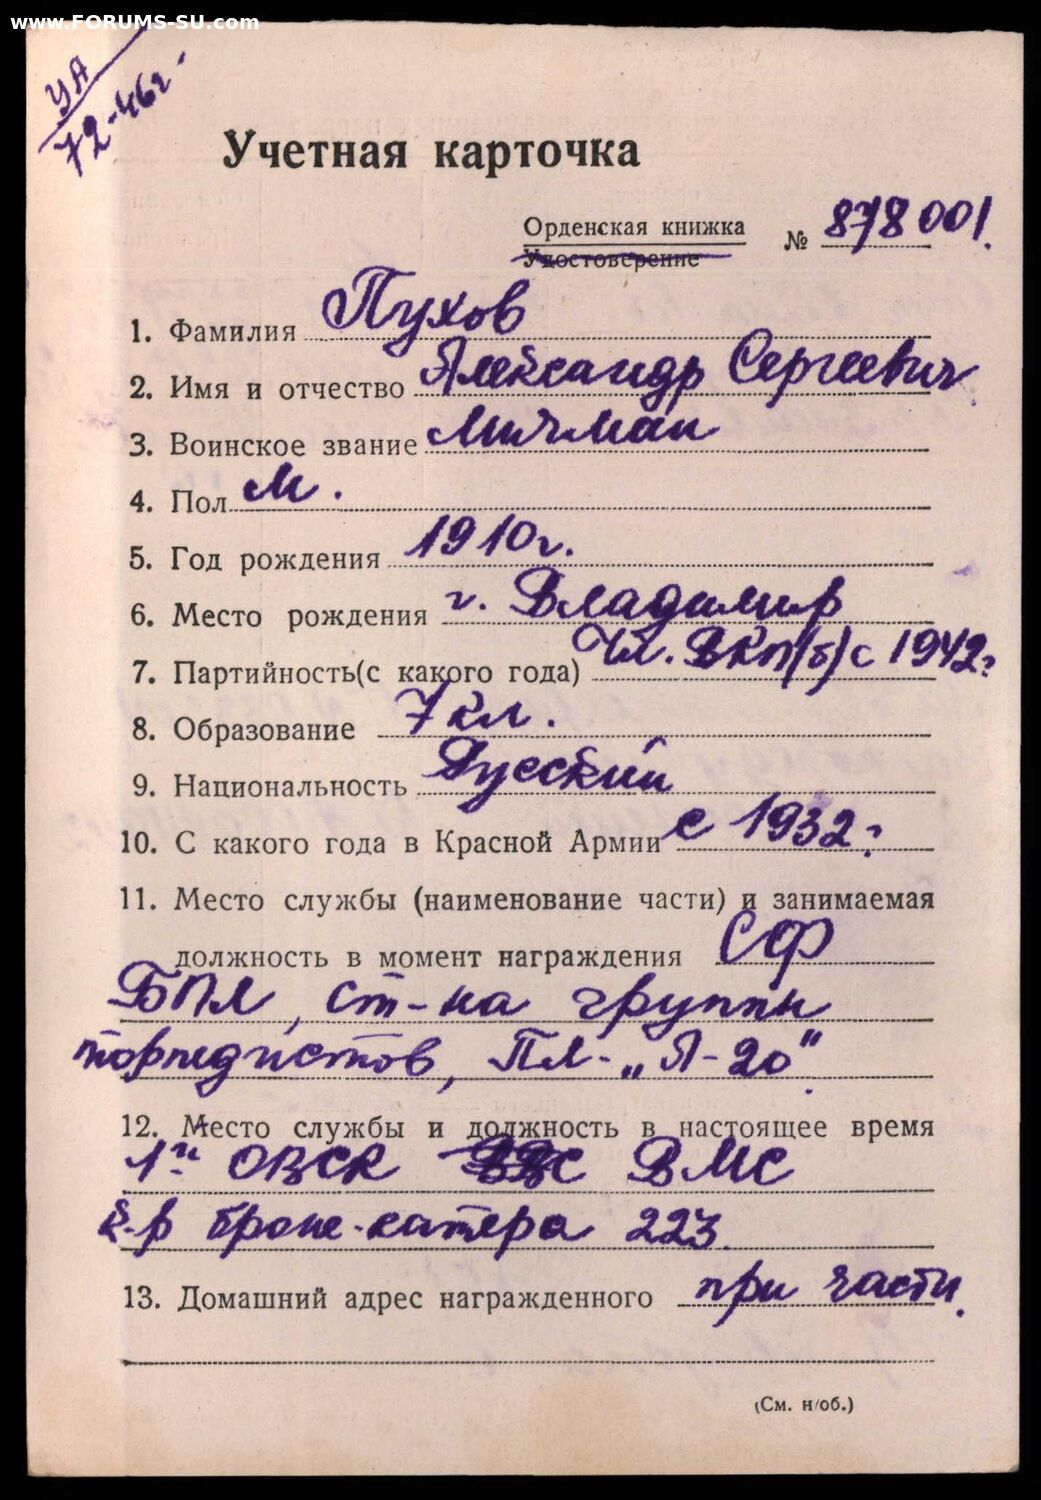 www.FORUMS-SU.com
УА
72-46г-
Учетная карточка
Орденская книжка
Удостоверение
№ 878001.
1. Фамилия Пухов
2. Имя и отчество Александр Сергеевич
3. Воинское звание Мичман
4. Пол М.
5. Год рождения 1910г.
6. Место рождения г. Владимир
7. Партийность(с какого года) Чл. ВКП(б) с 1942г
8. Образование 7 кл.
9. Национальность Русский
10. С какого года в Красной Армии с 1932г
11. Место службы (наименование части) и занимаемая
должность в момент награждения СФ
БПЛ, ст-на группы
торпедистов, ПЛ- „Л-20"
12. Место службы и должность в настоящее время
ОВСК ВМС
к-р броне-катера 223.
13. Домашний адрес награжденного при части.
(См. н/об.)